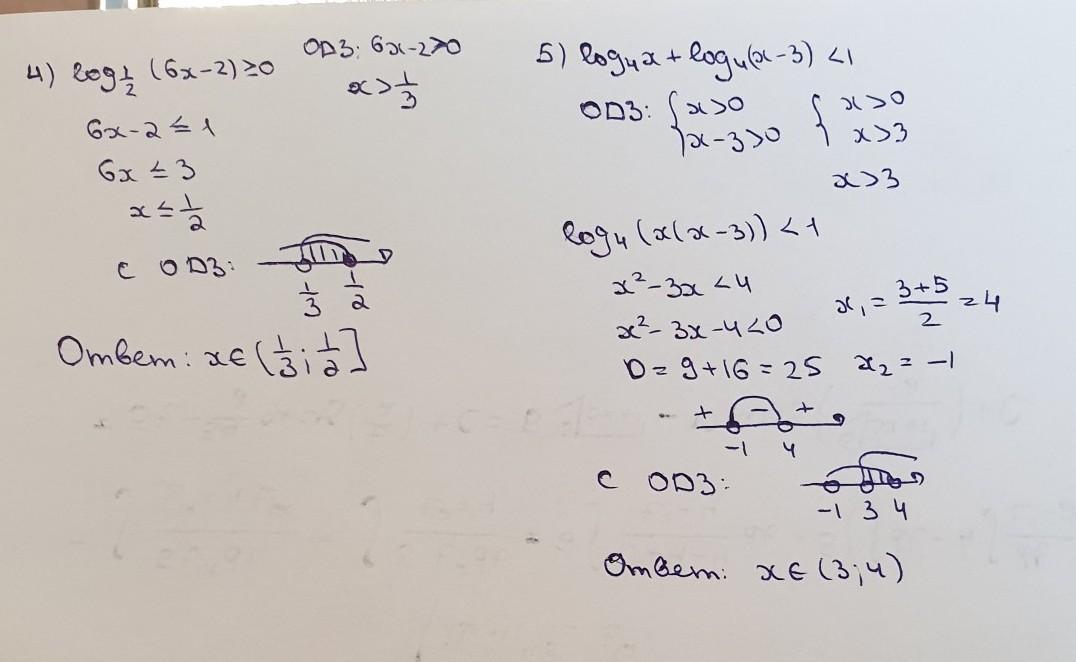 4) log 1/2 (6x-2) ≥ 0 ОДЗ: 6x-2>0
x > 1/3
6x-2 ≤ 1
6x ≤ 3
x ≤ 1/2
С ОДЗ:
1/3 1/2
Ответ: x ∈ (1/3; 1/2]
5) log₄x + log₄(x-3) < 1
ОДЗ: { x>0 { x>0
x-3>0 x>3
x>3
log₄(x(x-3)) < 1
x²-3x < 4
x²-3x-4<0
D = 9+16 = 25
x₁ = (3+5)/2 = 4
x₂ = -1
+ - +
-1 4
С ОДЗ:
-1 3 4
Ответ: x ∈ (3;4)